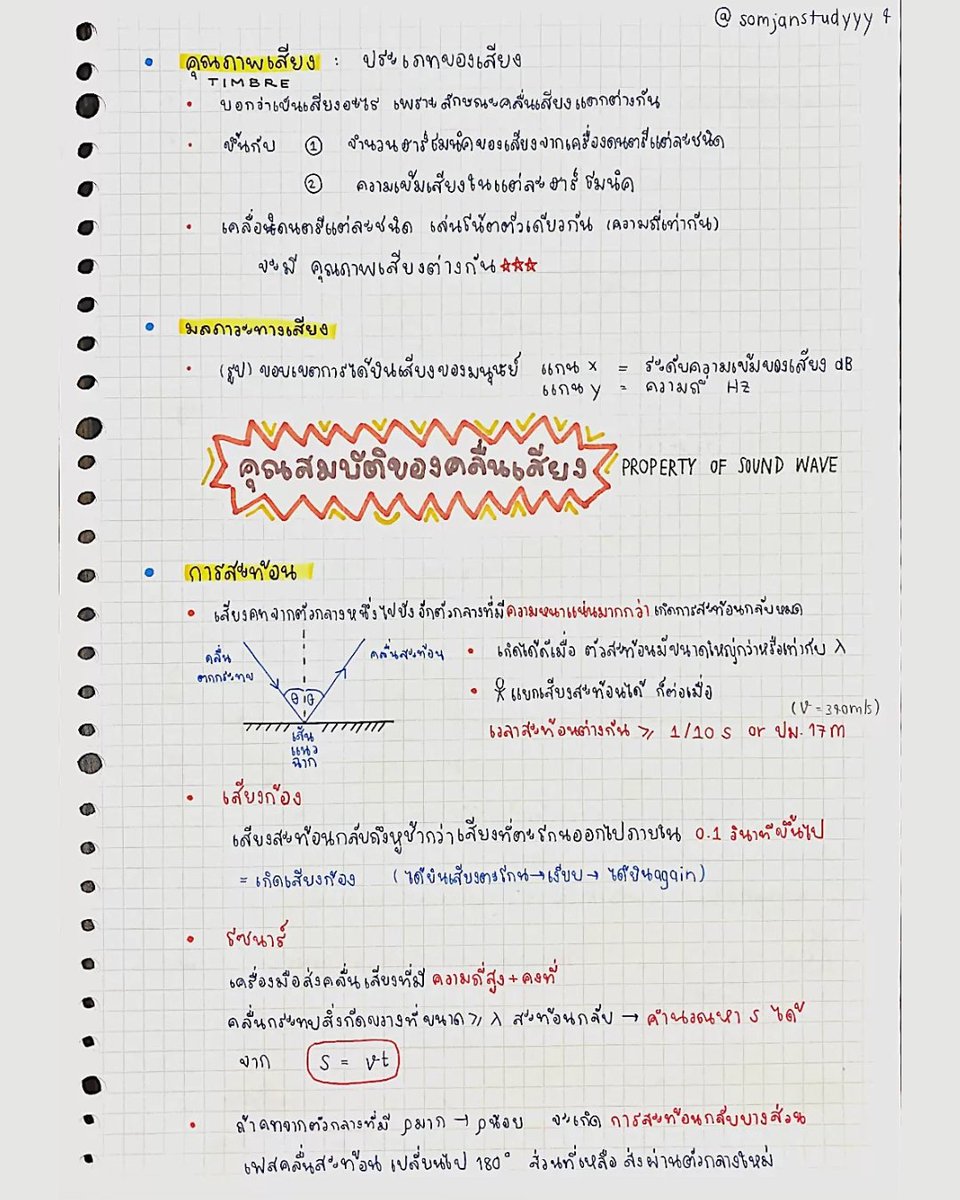 @somjanstudyyy 4
• คุณภาพเสียง : ประเภทของเสียง
TIMBRE
• บอกว่าเป็นเสียงอะไร เพราะลักษณะคลื่นเสียงแตกต่างกัน
• ขึ้นกับ ① จำนวนฮาร์โมนิคของเสียงจากเครื่องดนตรีแต่ละชนิด
② ความเข้มเสียงในแต่ละฮาร์โมนิค
• เคลื่อนดนตรีแต่ละชนิด เล่นโน้ตตัวเดียวกัน (ความถี่เท่ากัน)
จะมี คุณภาพเสียงต่างกัน ☆☆☆
• มลภาวะทางเสียง
• (รูป) ขอบเขตการได้ยินเสียงของมนุษย์ แกน x = ระดับความเข้มของเสียง dB
แกน y = ความถี่ Hz
คุณสมบัติของคลื่นเสียง PROPERTY OF SOUND WAVE
• การสะท้อน
• เสียงคทจากตัวกลางหนึ่งไปยังอีกตัวกลางที่มีความหนาแน่นมากกว่า เกิดการสะท้อนกลับหมด
คลื่นตกกระทบ
คลื่นสะท้อน
θ θ
เส้นแนวฉาก
• เกิดได้ดีเมื่อ ตัวสะท้อนมีขนาดใหญ่กว่าหรือเท่ากับ λ
• แยกเสียงสะท้อนได้ ก็ต่อเมื่อ
(v = 340 m/s)
เวลาสะท้อนต่างกัน ≥ 1/10 s or ปม. 17 m
• เสียงก้อง
เสียงสะท้อนกลับถึงหูช้ากว่าเสียงที่ตะโกนออกไปภายใน 0.1 วินาทีขึ้นไป
= เกิดเสียงก้อง (ได้ยินเสียงตะโกน → เงียบ → ได้ยินagain)
• โซนาร์
เครื่องมือส่งคลื่นเสียงที่มี ความถี่สูง + คงที่
คลื่นกระทบสิ่งกีดขวางที่ขนาด ≥ λ สะท้อนกลับ → คำนวณหา s ได้
จาก s = vt
• ถ้าคทจากตัวกลางที่มี ρมาก → ρน้อย จะเกิด การสะท้อนกลับบางส่วน
เฟสคลื่นสะท้อน เปลี่ยนไป 180° ส่วนที่เหลือ ส่งผ่านตัวกลางใหม่